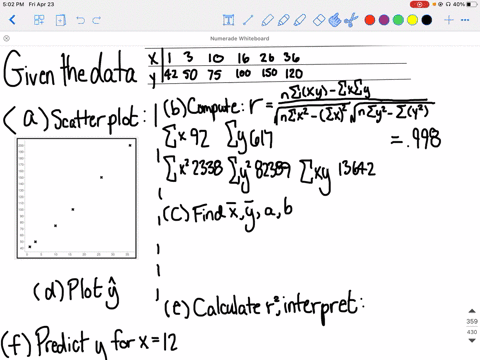 5:02 PM Fri Apr 23
40%
Numerade Whiteboard
Given the data
X 1 3 10 16 26 36
y 42 50 75 100 150 120
(a) Scatterplot:
(b) Compute: r = nΣ(xy) - ΣxΣy / √nΣx² - (Σx)² √nΣy² - Σ(y²)
Σx 92 Σy 617 = .998
Σx² 2338 Σy² 82389 Σxy 13642
(c) Find x̄, ȳ, a, b
(d) Plot ŷ
(e) Calculate r², interpret:
(f) Predict y for x = 12
359
430